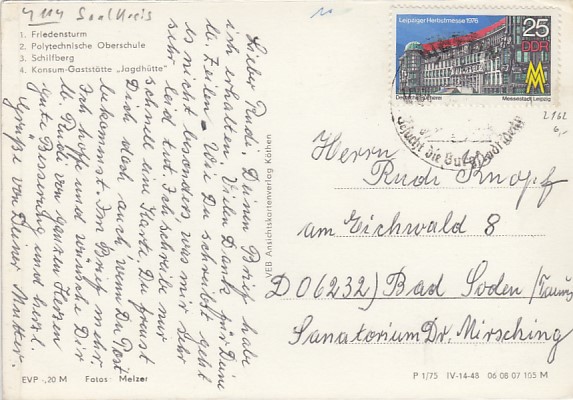 Saalkreis
1. Friedensturm
2. Polytechnische Oberschule
3. Schilfberg
4. Konsum-Gaststätte „Jagdhütte"
Lieber Rudi, Deinen Brief habe
ich erhalten. Vielen Dank für Deine
lb. Zeilen. Wie Du schreibst geht
es nicht besonders was mir sehr
sehr leid tut. Ich schreibe nur
schnell eine Karte Du freust
Dich doch auch wenn Du Post
bekommst. Im Brief mehr
Ich hoffe und wünsche Dir
lb. Rudi von ganzen Herzen
gute Besserung und herzl.
Grüsse von Deiner Mutter.
VEB Ansichtskartenverlag Köthen
Leipziger Herbstmesse 1976
25
DDR
MM
Deutsche Bücherei
Messestadt Leipzig
Besucht die
2162
6,-
Herrn
Rudi Knopf
am Eichwald 8
D 06232) Bad Soden /Taunus
Sanatorium Dr. Mirsching
EVP -,20 M Fotos: Melzer
P 1/75 IV-14-48 06 08 07 105 M